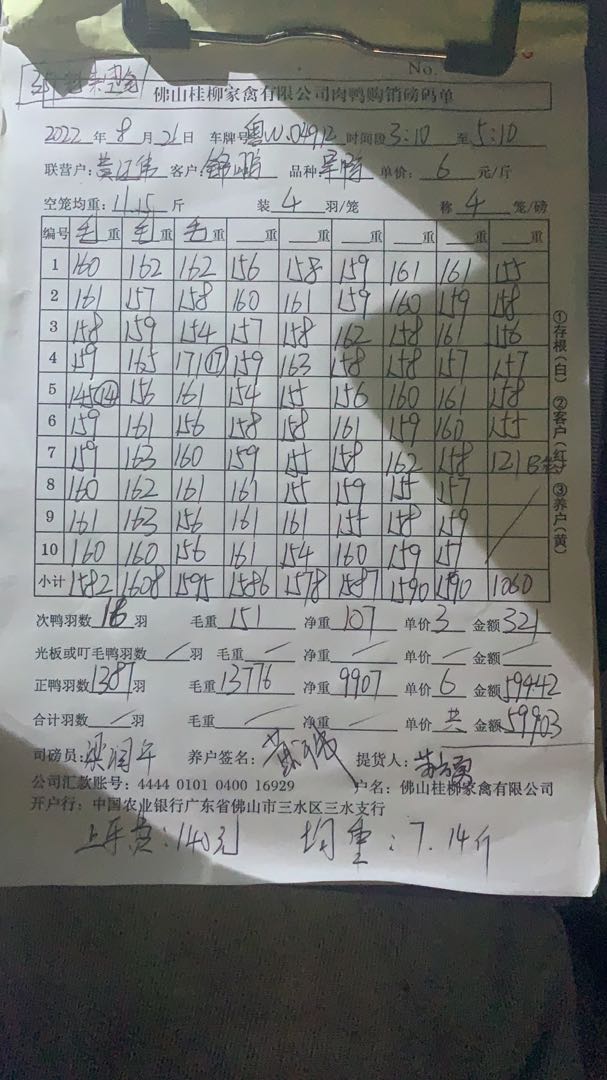 No.
佛山桂柳家禽有限公司肉鸭购销磅码单
2022 年 8 月 21 日 车牌号 粤W.04912 时间段 3:10 至 5:10
联营户: 客户: 品种: 单价: 6 元/斤
空笼均重: 11.15 斤 装 4 羽/笼 称 4 笼/磅
编号 毛重 毛重 毛重 重 重 重 重 重 重
1 160 162 162 156 158 159 161 161 155
2 161 157 158 160 161 159 160 159 158
3 158 159 154 157 158 162 158 161 156
4 159 165 171⑰ 159 163 158 158 157 157
5 145⑭ 156 161 154 155 156 160 161 158
6 159 161 156 158 158 161 159 160 155
7 159 163 160 159 155 158 162 158 121
8 160 162 161 161 155 159 155 157
9 161 163 156 161 161 155 158 159
10 160 160 156 161 154 160 159 157
小计 1582 1608 1595 1586 1578 1587 1590 1590 1060
①存根(白) ②客户(红) ③养户(黄)
次鸭羽数 羽 毛重 151 净重 107 单价 3 金额 321
光板或叮毛鸭羽数 / 羽 毛重 / 净重 / 单价 / 金额 /
正鸭羽数 1387 羽 毛重 13776 净重 9907 单价 6 金额 59442
合计羽数 / 羽 毛重 / 净重 / 单价 共 金额 59903
司磅员: 养户签名: 提货人:
公司汇款账号: 4444 0101 0400 16929 户名: 佛山桂柳家禽有限公司
开户行: 中国农业银行广东省佛山市三水区三水支行
上车费:140元 均重:7.14斤